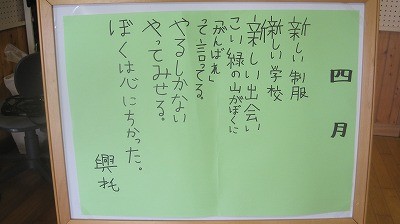 四月
新しい制服
新しい学校
新しい出会い
こい緑の山がぼくに
「がんばれ」
って言ってる。
やるしかない
やってみせる。
ぼくは心にちかった。
興毛